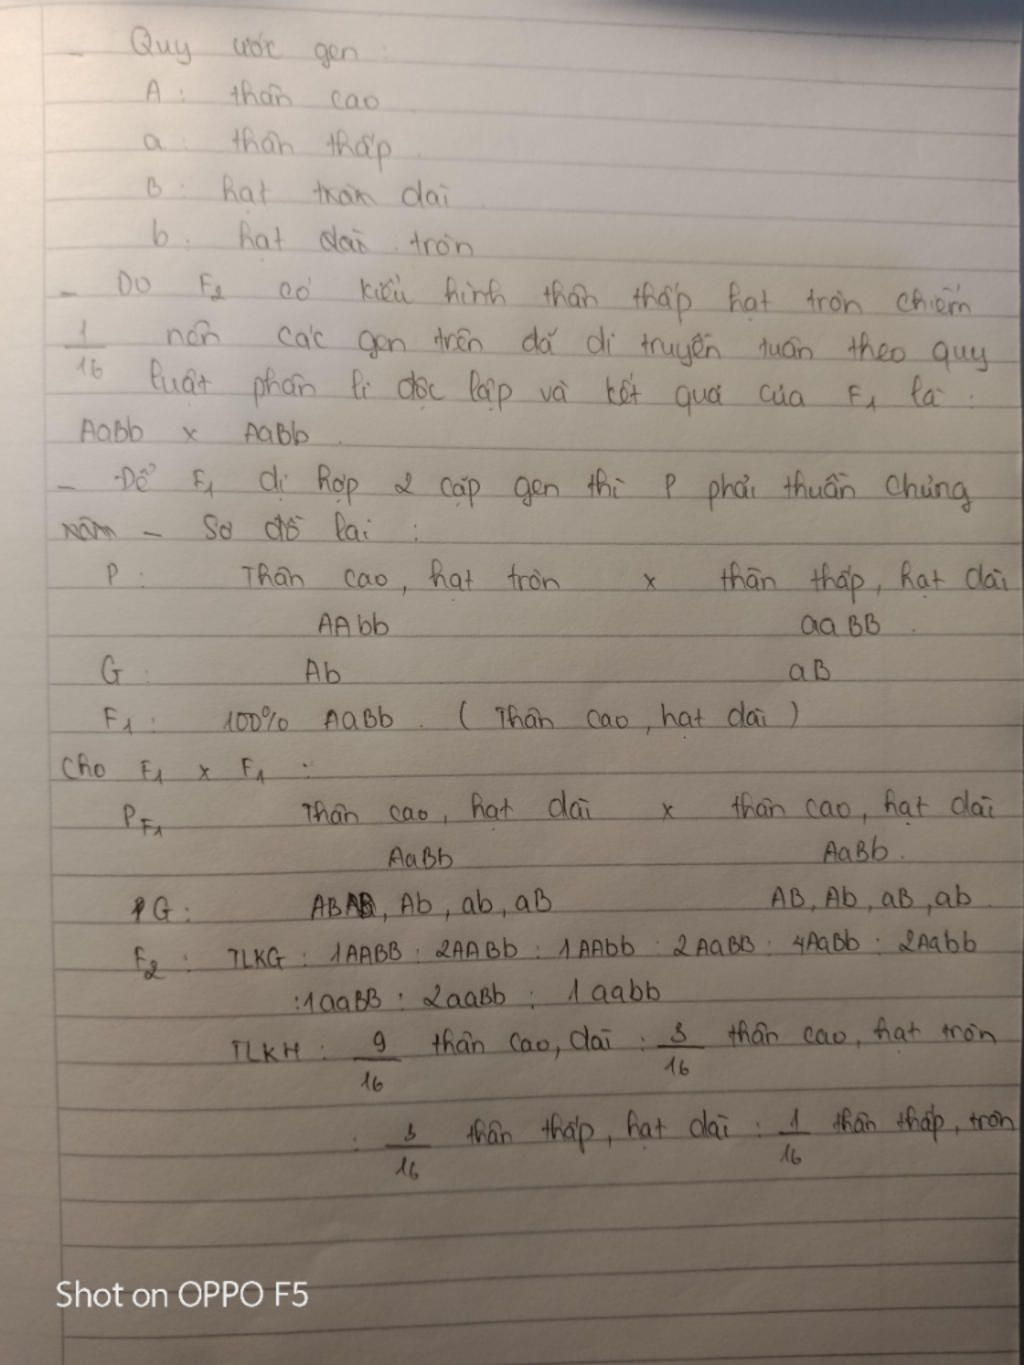 - Quy ước gen :
A : thân cao
a : thân thấp
B : hạt dài
b : hạt tròn
- Do F2 có kiểu hình thân thấp hạt tròn chiếm
1/16 nên các gen trên đã di truyền tuân theo quy
luật phân li độc lập và kết quả của F1 là :
AaBb x AaBb.
- Để F1 dị hợp 2 cặp gen thì P phải thuần chủng
- Sơ đồ lai :
P : Thân cao, hạt tròn x thân thấp, hạt dài
AAbb aaBB.
G : Ab aB
F1 : 100% AaBb. ( Thân cao, hạt dài )
Cho F1 x F1 :
PF1 Thân cao, hạt dài x thân cao, hạt dài
AaBb AaBb.
G : AB, Ab, ab, aB AB, Ab, aB, ab.
F2 : TLKG : 1AABB : 2AABb : 1AAbb : 2AaBB : 4AaBb : 2Aabb
: 1aaBB : 2aaBb : 1aabb
TLKH : 9/16 thân cao, dài : 3/16 thân cao, hạt tròn
: 3/16 thân thấp, hạt dài : 1/16 thân thấp, tròn
Shot on OPPO F5